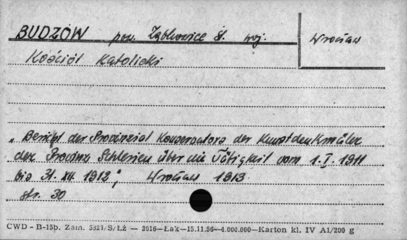 BUDZÓW pow. Ząbkowice Śl. woj. Wrocław
Kościół Katolicki
„Bericht der Provinzial Konservators der Kunstdenkmäler
der Provinz Schlesien über die Tätigkeit vom 1.I.1911
bis 31.XII.1912", Wrocław 1913.
str. 30
CWD - B-15p. Zam. Łż — 2016—Łak—15.11.56—4.000.000—Karton kl. IV A1/200 g